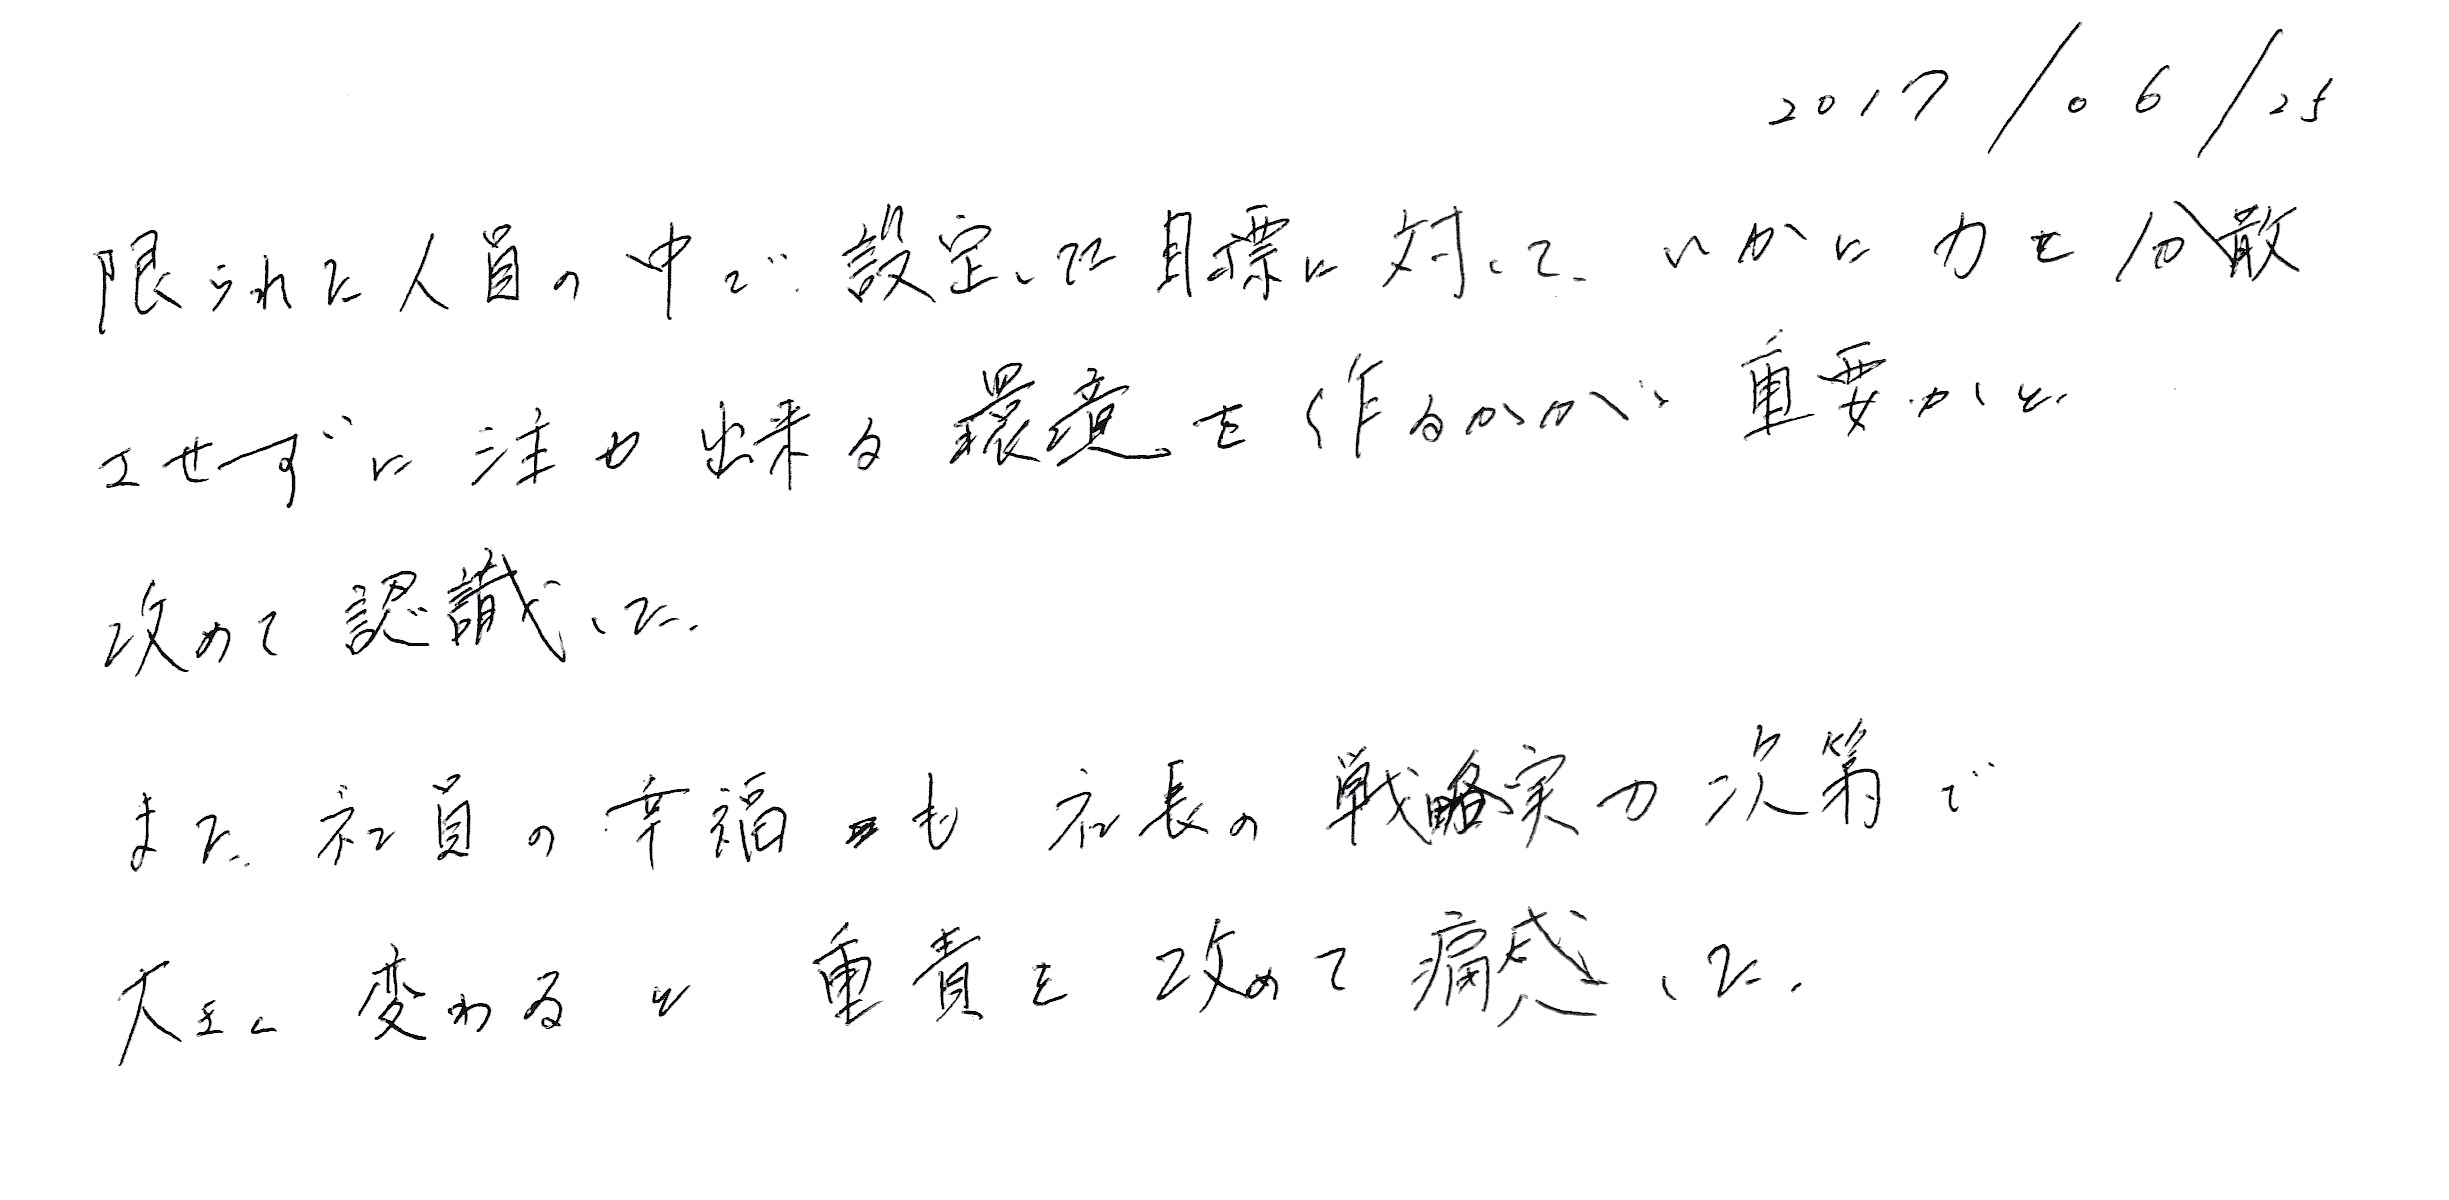 2017/06/25
限られた人員の中で設定した目標に対して、いかに力を分散
させずに注力出来る環境を作るかが重要かと、
改めて認識した。
また、社員の幸福も社長の戦略実力次第で
大きく変わると重責を改めて痛感した。